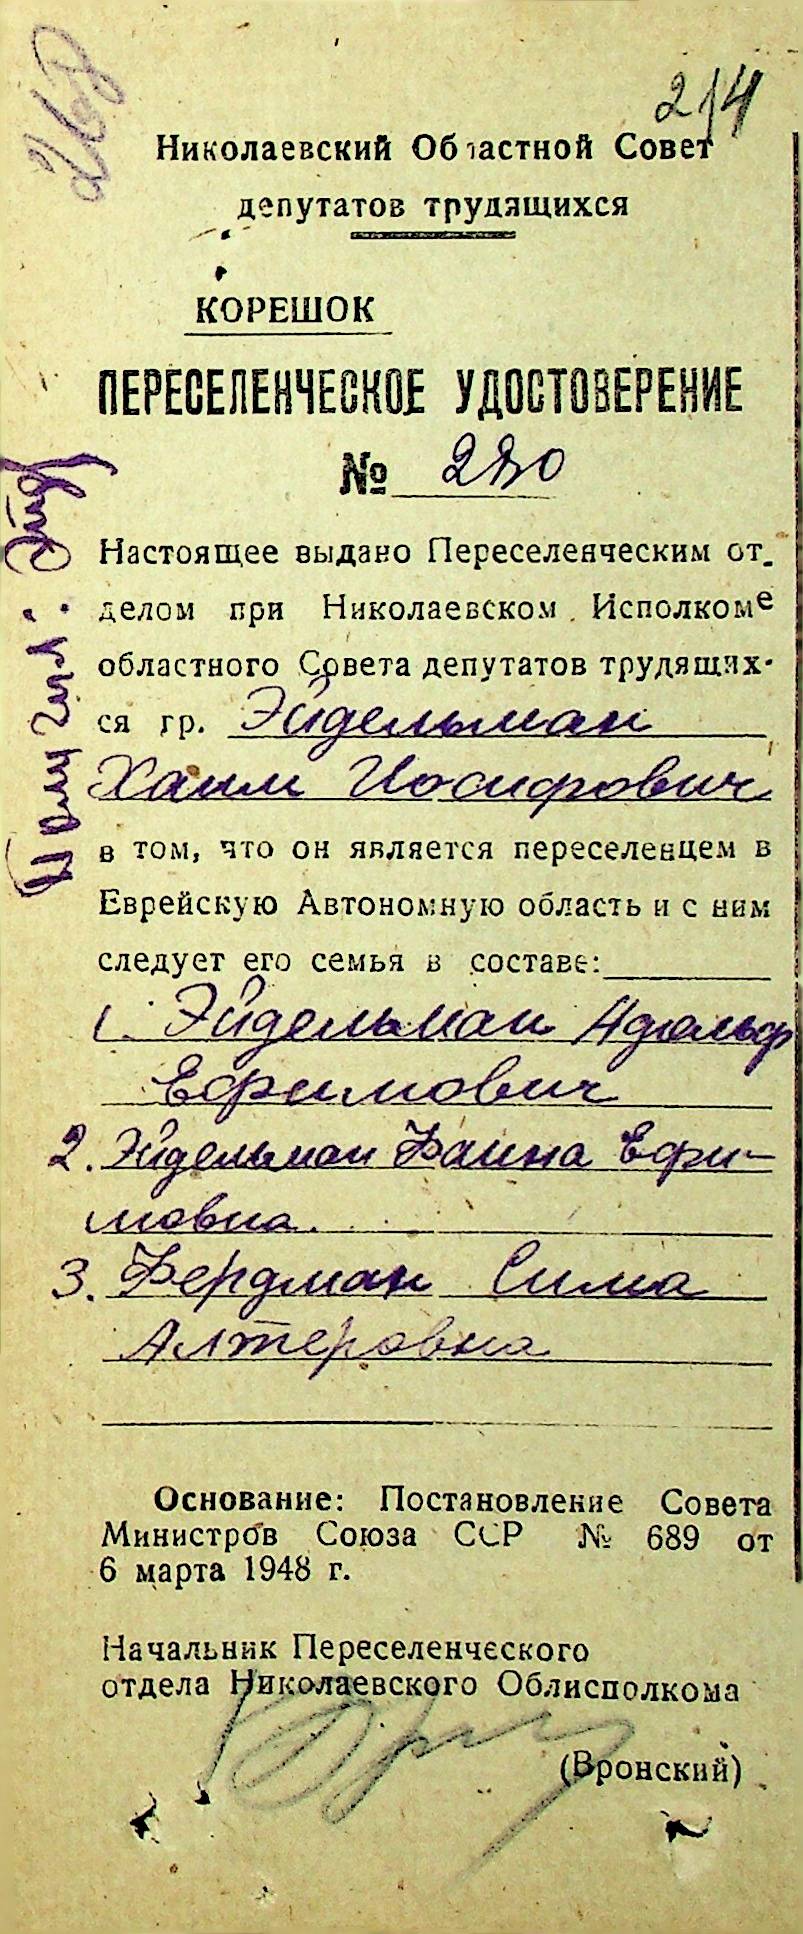 268
214
Николаевский Областной Совет
депутатов трудящихся
КОРЕШОК
ПЕРЕСЕЛЕНЧЕСКОЕ УДОСТОВЕРЕНИЕ
№
Настоящее выдано Переселенческим от-
делом при Николаевском Исполкоме
областного Совета депутатов трудящих-
ся гр. Эйдельман
Хаим Иосифович
в том, что он является переселенцем в
Еврейскую Автономную область и с ним
следует его семья в составе:
1. Эйдельман Адольф
Ефимович
2. Эйдельман Фаина Ефи-
мовна.
3. Фердман Сима
Алтеровна
Основание: Постановление Совета
Министров Союза ССР № 689 от
6 марта 1948 г.
Начальник Переселенческого
отдела Николаевского Облисполкома
(Вронский)